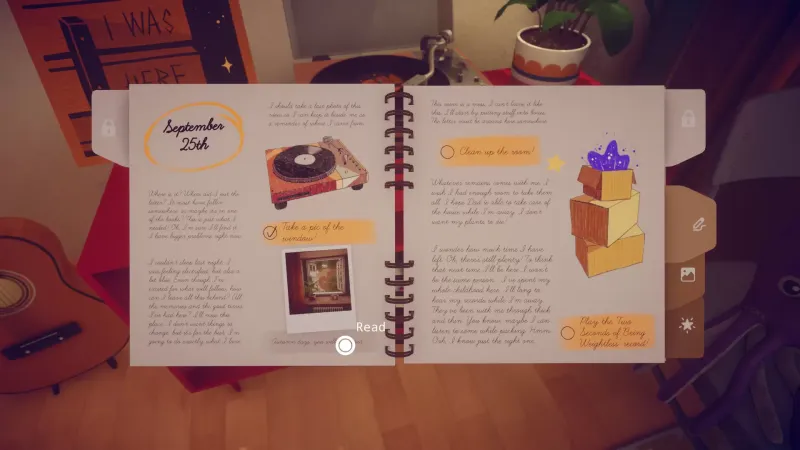 I WAS
HERE
September
25th
Where is it? Where did I put the
letter? It must have fallen
somewhere, or maybe its in one
of the books? This is just what I
needed! Oh, I'm sure I'll find it.
I have bigger problems right now.
I couldn't sleep last night. I
was feeling
but also a
bit blue. Even though I've
waited for what will follow, how
can I leave all this behind? All
the memories and the good times
I've had here? I'll miss this
place. I don't want things to
change, but dis for the best. I'm
going to do exactly what I love.
I should take a last photo of this
view so I can keep it beside me as
a reminder of where I come from.
Take a pic of the
window!
you will
Read
This room is a mess. I can't leave it like
this. I'll start by putting stuff into boxes.
The letter must be around here somewhere.
Clean up the room!
Whatever remains comes with me. I
wish I had enough room to take them
all. I hope Dad is able to take care of
the house while I'm away. I don't
want my plants to die!
I wonder how much time I have
left. Oh, there's still plenty! To think
that next time I'll be here, I won't
be the same person... I've spent my
whole childhood here. I'll long to
hear my records while I'm away.
They've been with me through thick
and thin. You know, maybe I can
listen to some while packing. Hmmm.
Ooh, I know just the right one.
Play the Two
Seconds of Being
Weightless record!